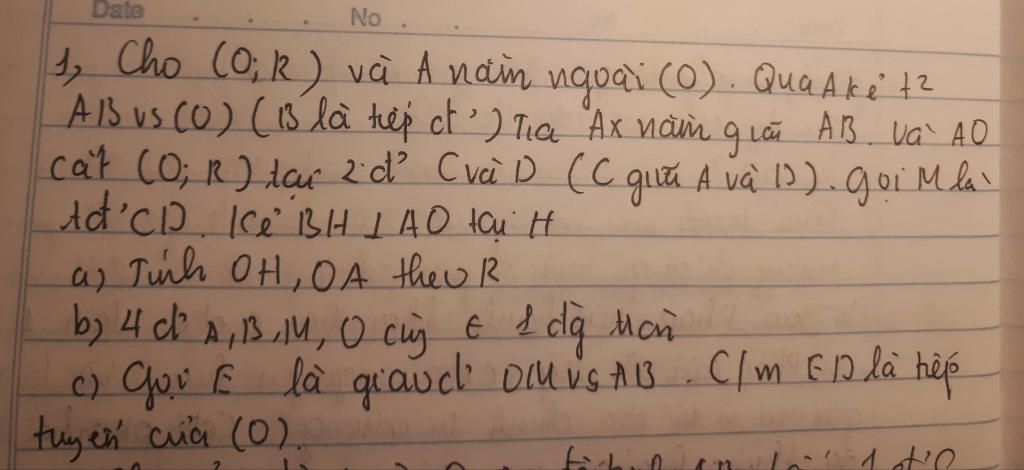 Date . . . No . .
1, Cho (O; R) và A nằm ngoài (O). Qua A kẻ t2
AB vs (O) (B là tiếp đ') Tia Ax nằm giữa AB và AO
cắt (O; R) tại 2 đ' C và D (C giữa A và D). gọi M là
tđ' CD. Kẻ BH ⊥ AO tại H
a) Tính OH, OA theo R
b) 4 đ' A, B, M, O cùg ∈ 1 đg tròn
c) Gọi E là giao đ' OM vs AB. C/m ED là tiếp
tuyến của (O).